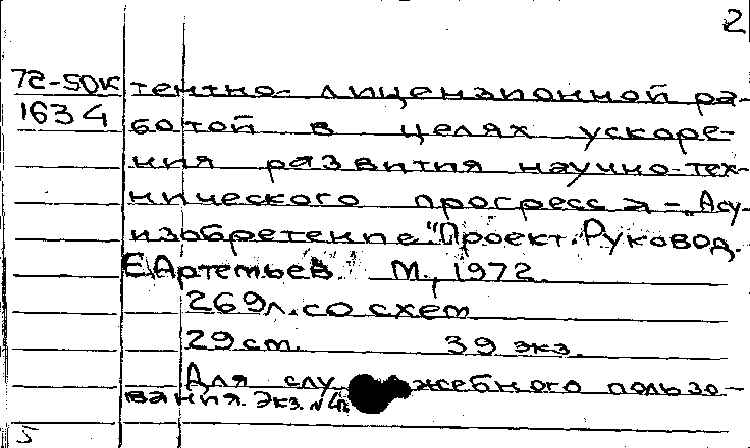 2
72-50К тентно-лицензионной ра-
1634 ботой в целях ускоре-
ния развития научно-тех-
нического прогресса - „Асу-
изобретение". Проект. Руковод.
Е.Артемьев. М., 1972
269л. со схем.
29 см. 39 экз.
Для служебного пользо-
вания. Экз. №
5